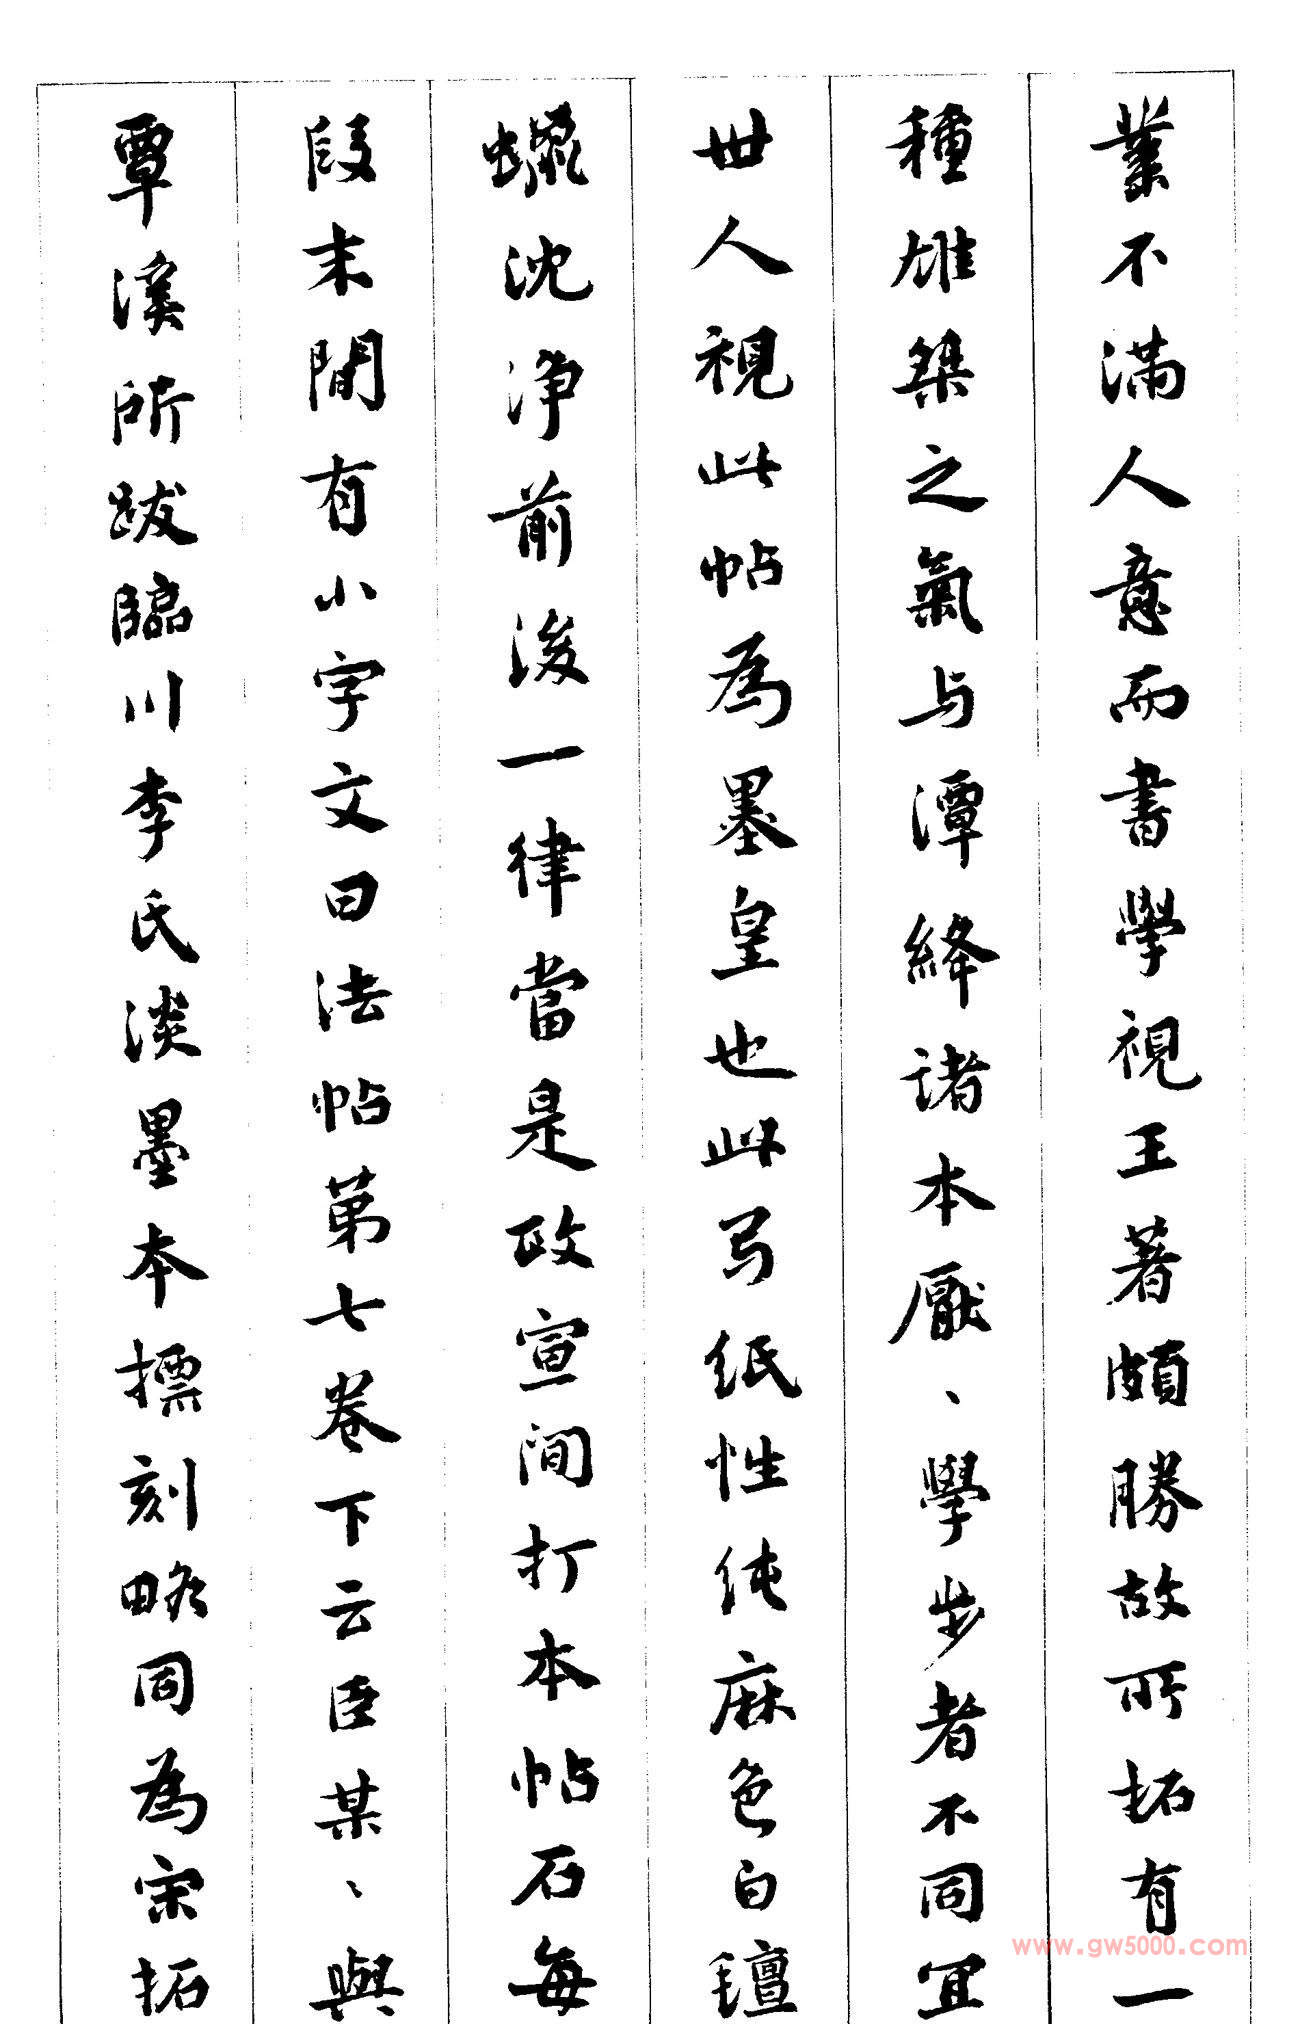 業不滿人意而書學視王著頗勝故所拓有一
種雄桀之氣与潭絳諸本厭、學步者不同宜
世人視此帖為墨皇也此弓紙性純麻色白氊
蠟沈淨前後一律當是政宣間打本帖石每
段末間有小字文曰法帖第七卷下云臣某、與
覃溪所跋臨川李氏淡墨本標刻略同為宋拓
www.gw5000.com